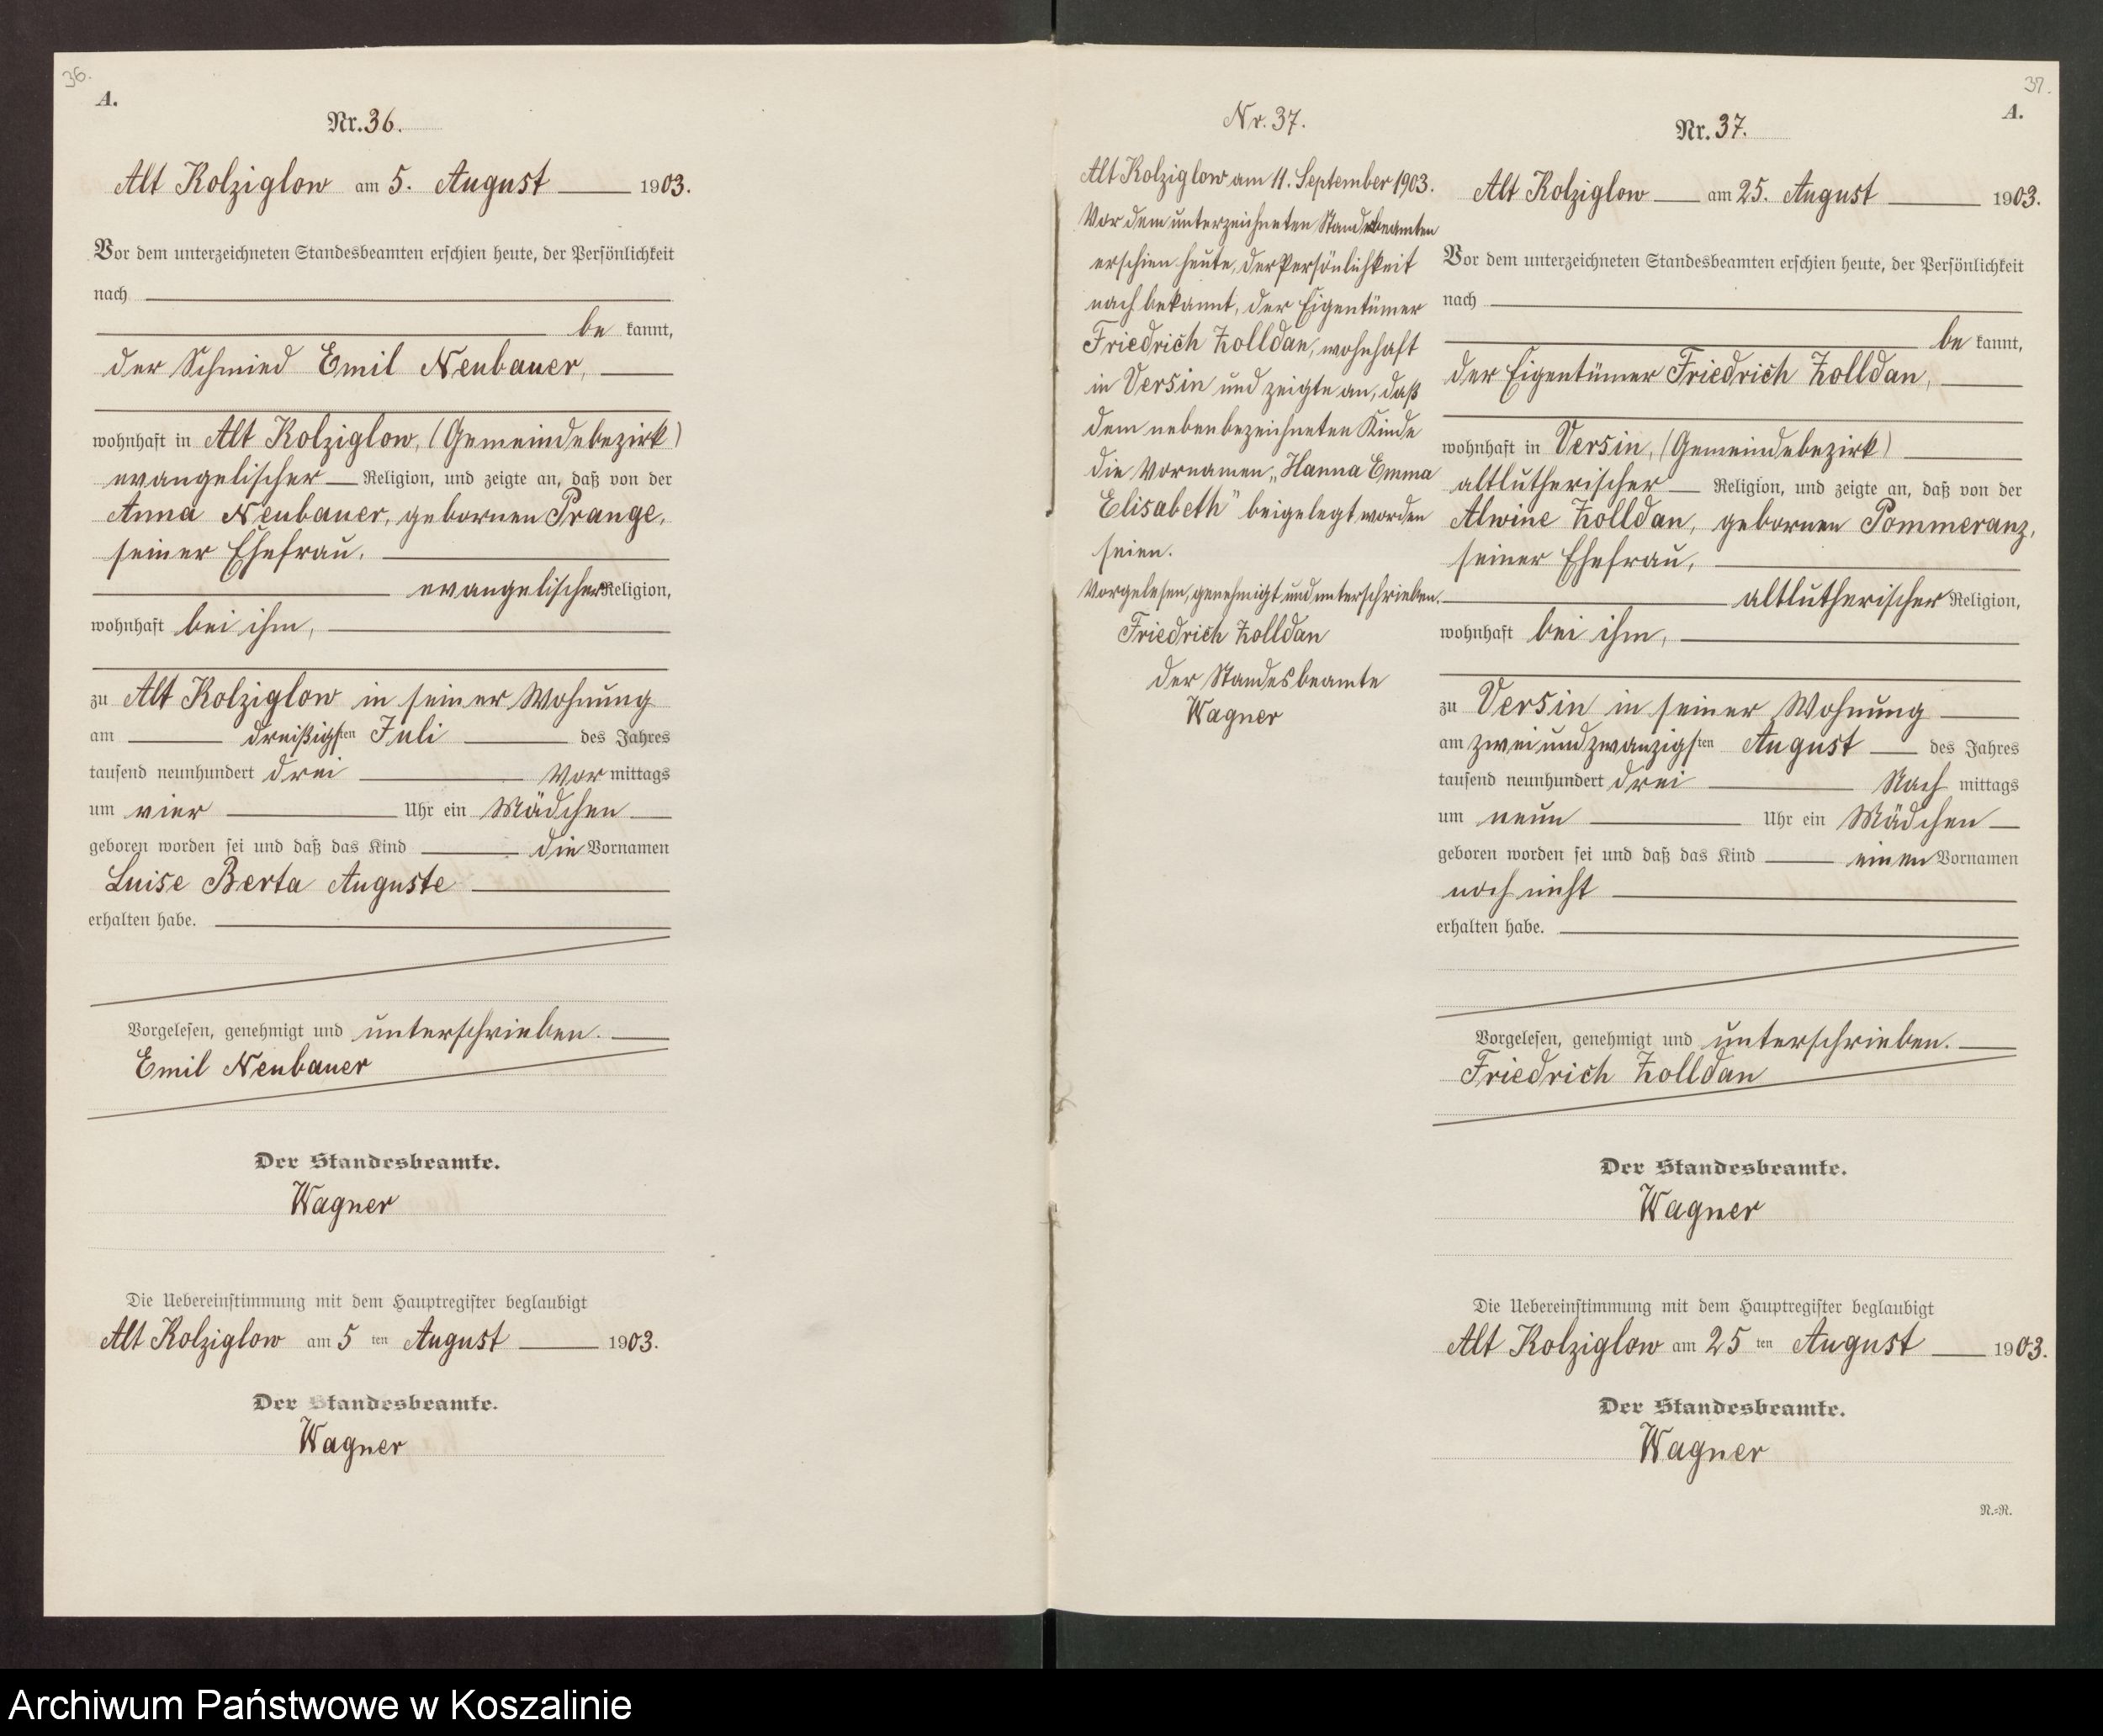 36.
A.
Nr. 36.
Alt Kolziglow am 5. August 1903.
Vor dem unterzeichneten Standesbeamten erschien heute, der Persönlichkeit
nach
be kannt,
der Schmied Emil Neubauer,
wohnhaft in Alt Kolziglow, (Gemeindebezirk)
evangelischer Religion, und zeigte an, daß von der
Anna Neubauer, gebornen Prange,
seiner Ehefrau,
evangelischer Religion,
wohnhaft bei ihm,
zu Alt Kolziglow in seiner Wohnung
am dreißigsten Juli des Jahres
tausend neunhundert drei Vor mittags
um vier Uhr ein Mädchen
geboren worden sei und daß das Kind die Vornamen
Luise Berta Auguste
erhalten habe.
Vorgelesen, genehmigt und unterschrieben.
Emil Neubauer
Der Standesbeamte.
Wagner
Die Uebereinstimmung mit dem Hauptregister beglaubigt
Alt Kolziglow am 5 ten August 1903.
Der Standesbeamte.
Wagner
Nr. 37.
Alt Kolziglow am 11. September 1903.
Vor dem unterzeichneten Standesbeamten
erschien heute, der Persönlichkeit
nach bekannt, der Eigentümer
Friedrich Zolldan, wohnhaft
in Versin und zeigte an, daß
dem nebenbezeichneten Kinde
die Vornamen „Hanna Emma
Elisabeth" beigelegt worden
seien.
Vorgelesen, genehmigt und unterschrieben.
Friedrich Zolldan
Der Standesbeamte
Wagner
37.
A.
Nr. 37.
Alt Kolziglow am 25. August 1903.
Vor dem unterzeichneten Standesbeamten erschien heute, der Persönlichkeit
nach
be kannt,
der Eigentümer Friedrich Zolldan,
wohnhaft in Versin, (Gemeindebezirk)
altlutherischer Religion, und zeigte an, daß von der
Alwine Zolldan, gebornen Pommeranz,
seiner Ehefrau,
altlutherischer Religion,
wohnhaft bei ihm,
zu Versin in seiner Wohnung
am zweiundzwanzigsten August des Jahres
tausend neunhundert drei Nach mittags
um neun Uhr ein Mädchen
geboren worden sei und daß das Kind einen Vornamen
noch nicht
erhalten habe.
Vorgelesen, genehmigt und unterschrieben.
Friedrich Zolldan
Der Standesbeamte.
Wagner
Die Uebereinstimmung mit dem Hauptregister beglaubigt
Alt Kolziglow am 25 ten August 1903.
Der Standesbeamte.
Wagner
N.=R.
Archiwum Państwowe w Koszalinie